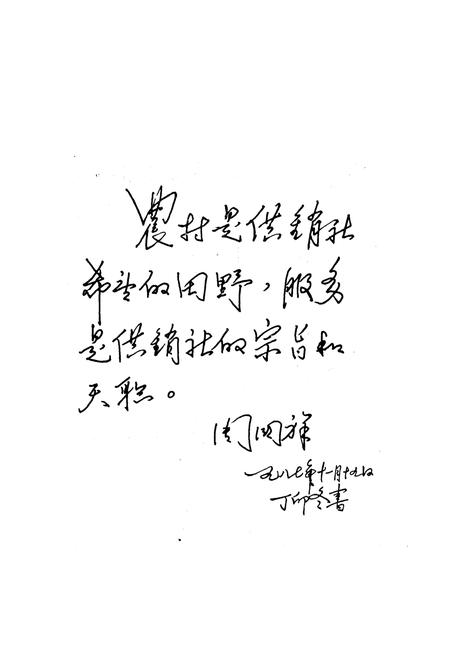 農村是供銷社
希望的田野，服务
是供銷社的宗旨和
天职。
周国祥
一九八七年十一月十九日
丁卯冬書